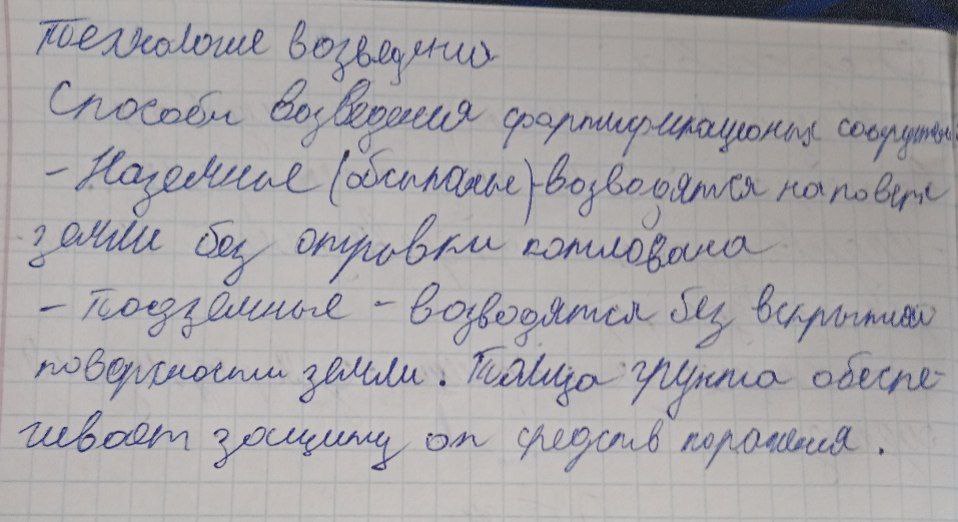 Технологие возведения
Способы возведения фортификационых сооружен
- Наземные (обсыпные) - возводятся на поверх
земли без отрывки котлована
- Подземные - возводятся без вскрытия
поверхности земли. Толща грунта обеспе-
чивает защиту от средств поражения.